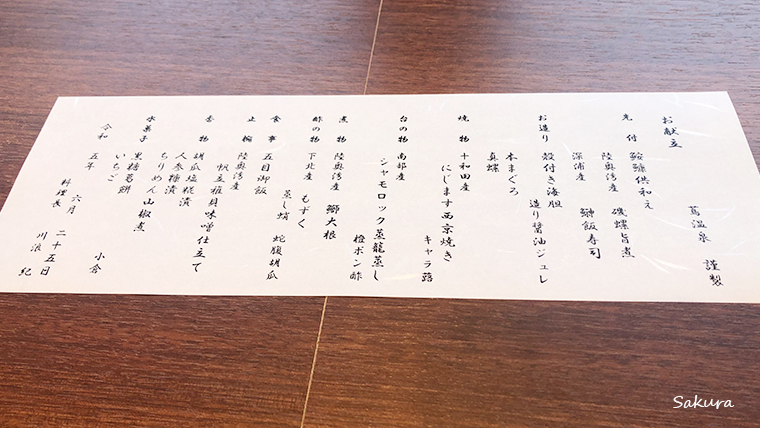 お献立
蔦温泉 謹製
先付 鮟鱇供和え
陸奥湾産 磯螺旨煮
深浦産 鰰飯寿司
お造り 殻付き海胆 造り醤油ジュレ
本まぐろ
真螺
焼物 十和田産
にじます西京焼き キャラ蕗
台の物 南部産
シャモロック蒸籠蒸し 橙ポン酢
煮物 陸奥湾産 鰤大根
酢の物 下北産 もずく
蒸し蛸 蛇腹胡瓜
食事 五目御飯
止椀 陸奥湾産
帆立稚貝味噌仕立て
香物 胡瓜塩糀漬
人参糠漬
ちりめん山椒煮
水菓子 黒糖葛餅
いちご
令和 五年 六月 二十五日
料理長 川浪 紀
小倉
Sakura